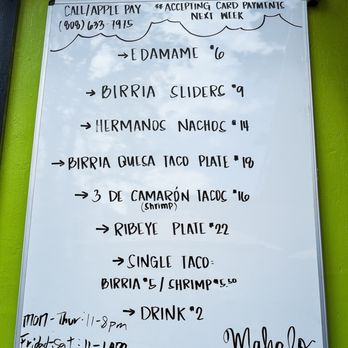 CALL/APPLE PAY ** ACCEPTING CARD PAYMENTS
(808) 633-7975 NEXT WEEK
→ EDAMAME $6
→ BIRRIA SLIDERS $9
→ HERMANOS NACHOS $14
→ BIRRIA QUESA TACO PLATE $18
→ 3 DE CAMARÓN TACOS $16
(shrimp)
→ RIBEYE PLATE $22
→ SINGLE TACO:
BIRRIA $5 / SHRIMP $5.50
→ DRINK $2
Mon-Thur: 11-8pm
Mahalo